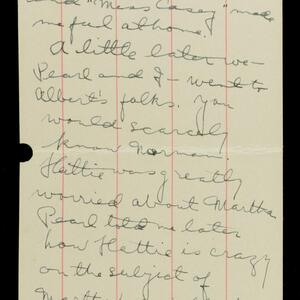 and "Miss Casey" made
me feel at home.
A little later we -
Pearl and I - went to
Albert's folks. You
would scarcely
know Norman.
Hattie was greatly
worried about Martha
Pearl told me later
how Hattie is crazy
on the subject of